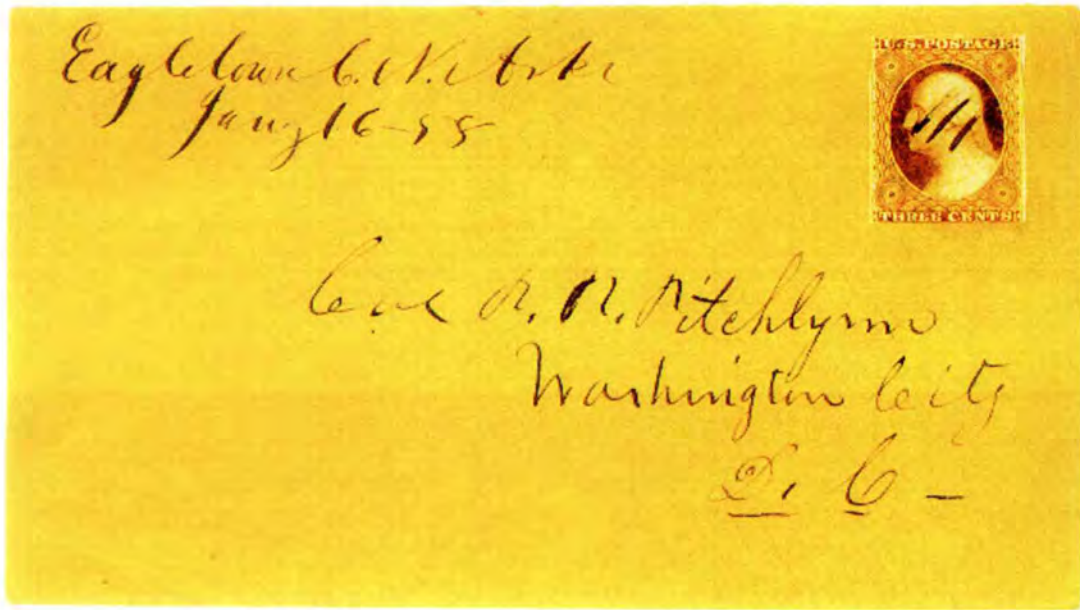 Eagletown C. N. Arks
Jany 16-55
U.S. POSTAGE
THREE CENTS
Col P. P. Pitchlynn
Washington City
D. C -